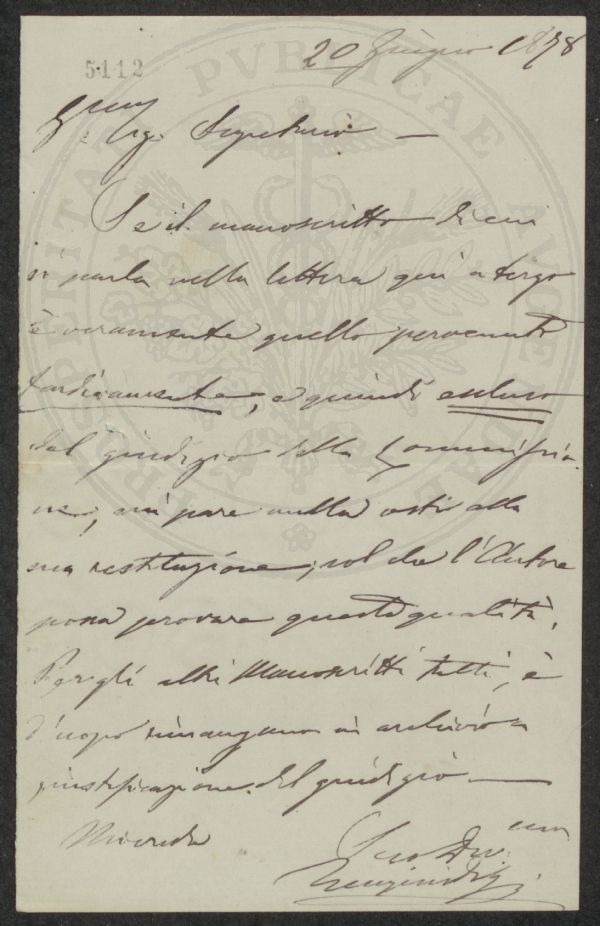 5112
20 Giugno 1878
Sig. Segretario —
Se il manoscritto di cui
si parla nella lettera qui a tergo
è veramente quello pervenuto
tardivamente, e quindi escluso
dal giudizio della Commissio
ne, mi pare nulla osti alla
sua restituzione, sol che l'Autore
possa provare questa qualità.
Per gli altri Manoscritti tutti, è
d'uopo rimangano in archivio a
giustificazione del giudizio —
Mi creda
Suo Dev.